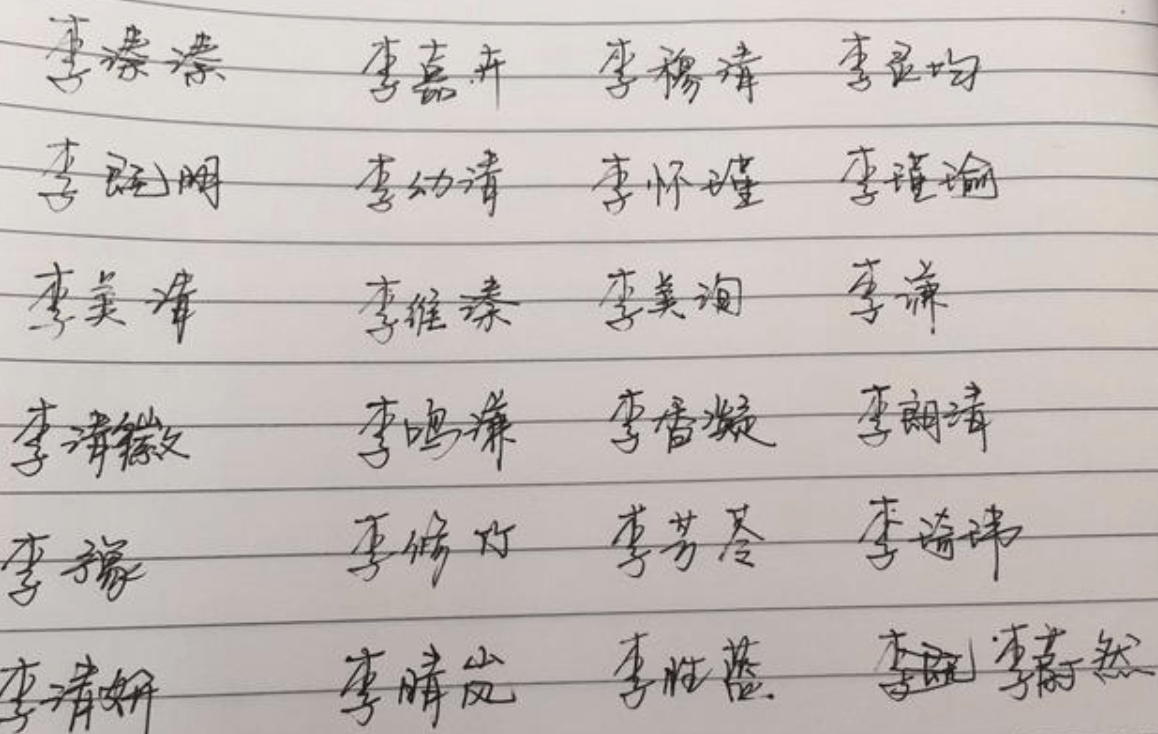 李溱溱 李嘉卉 李穆清 李灵均
李既明 李幼清 李怀瑾 李瑾瑜
李美清 李维溱 李美洵 李濂
李清徽 李鸣濂 李香凝 李朗清
李豫 李修竹 李芳苓 李琦玮
李清妍 李晴岚 李胜蓝 李蔚然